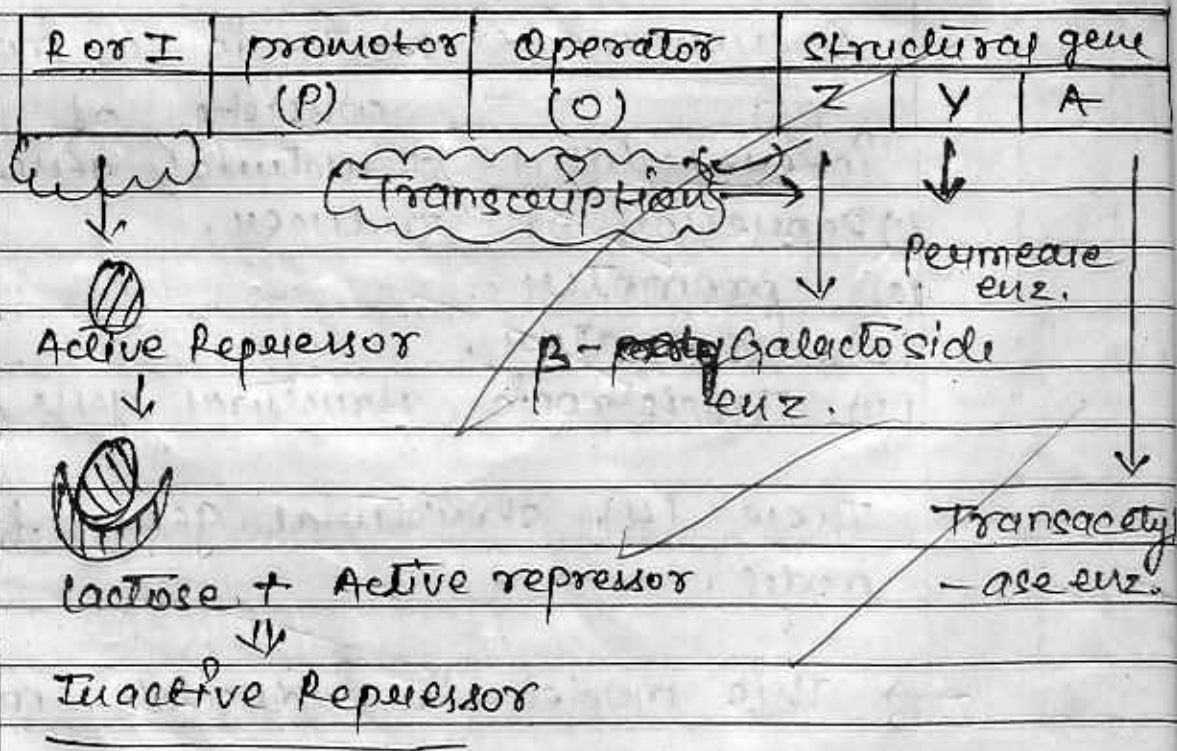 R or I promotor Operator structural gene
(P) (O) Z Y A
Transcription
Permease
enz.
Active Repressor β- Galactoside
enz.
Transacety
Lactose + Active repressor - ase enz.
Inactive Repressor